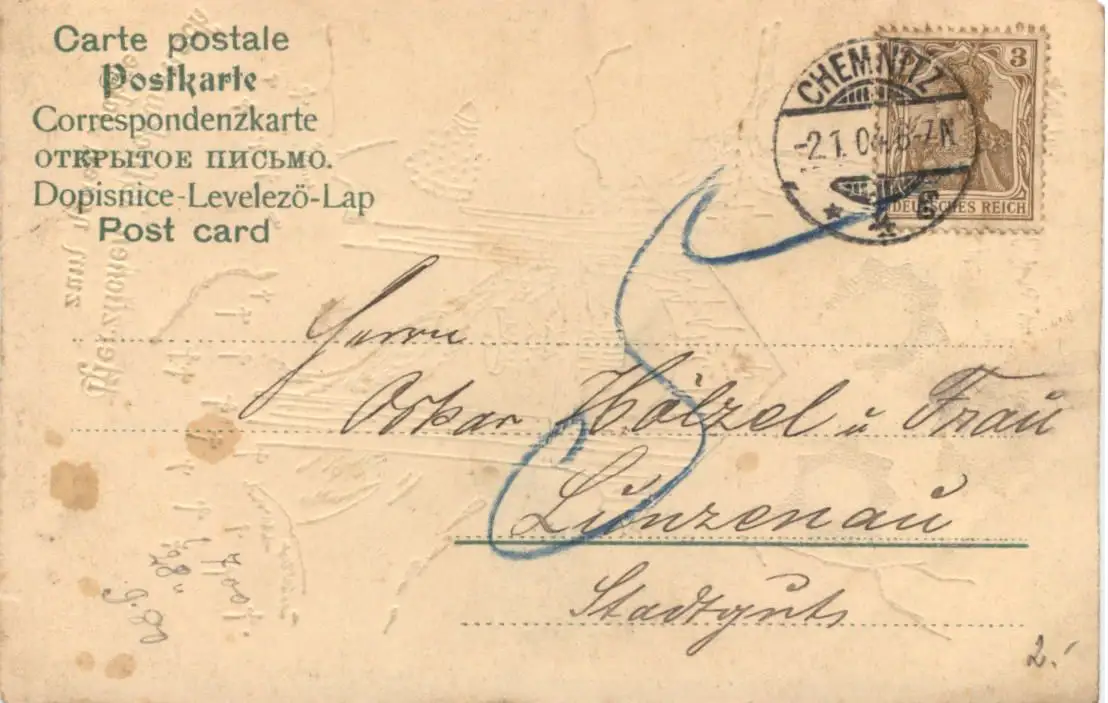 Carte postale
Postkarte
Correspondenzkarte
ОТКРЫТОЕ ПИСЬМО.
Dopisnice-Levelezö-Lap
Post card
3
CHEMNITZ
-2.1.04.6-7N.
DEUTSCHES REICH
Herrn
Oskar Hölzel u Frau
Lunzenau
Stadtguts
2.-